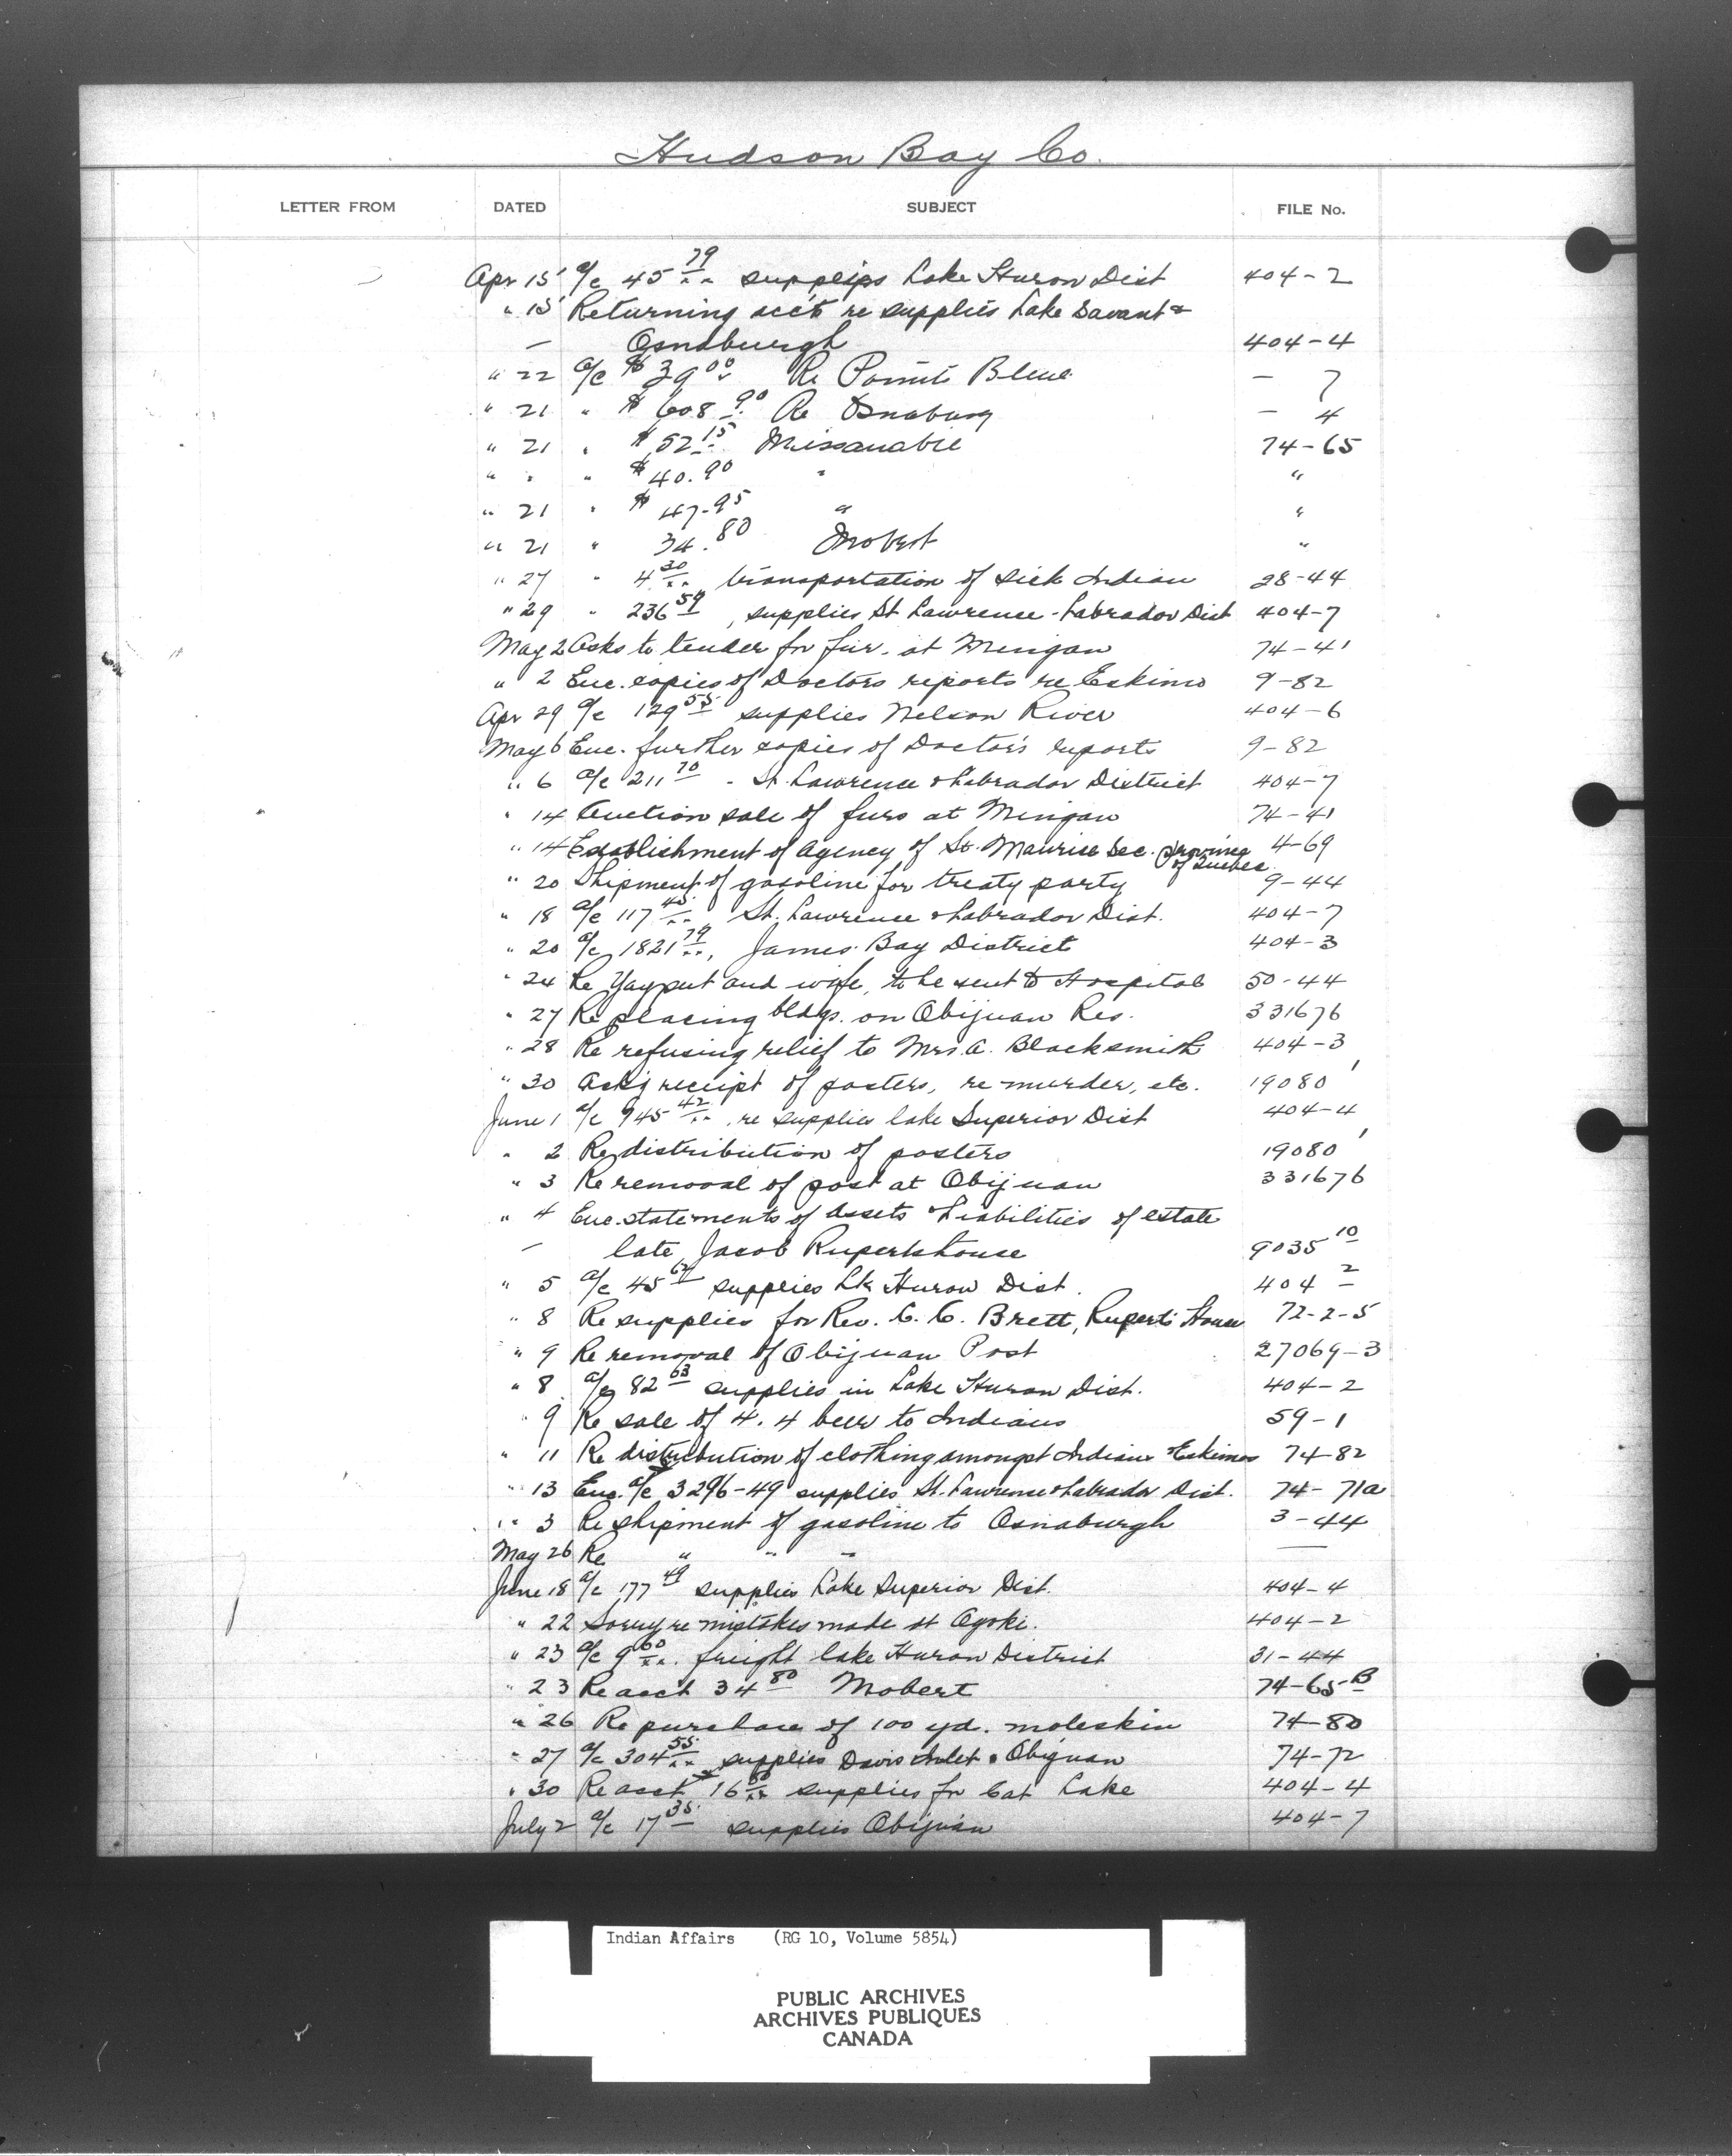 Hudson Bay Co.
LETTER FROM DATED SUBJECT FILE No.
Apr 15 a/c 45 79/.. supplies Lake Huron Dist 404-2
" 15 Returning acc't re supplies Lake Savant &
— Osnaburgh 404-4
" 22 a/c $39 00 Re Points Bleue — 7
" 21 " $608 90 Re Osnaburg — 4
" 21 " $52 15 Missanabie 74-65
" " " $40.90 " "
" 21 " $47.95 " "
" 21 " 34.80 Mobert "
" 27 " 4 30/.. transportation of sick Indian 28-44
" 29 " 236 59, supplies St Lawrence-Labrador Dist 404-7
May 2 Asks to tender for fur. at Mingan 74-41
" 2 Enc. copies of Doctors reports re Eskimo 9-82
Apr 29 a/c 129 55 supplies Nelson River 404-6
May 6 Enc. further copies of Doctor's reports 9-82
" 6 a/c 211 70 - St. Lawrence & Labrador District 404-7
" 14 Auction sale of furs at Mingan 74-41
" 14 Establishment of Agency of St. Maurice Sec. province of Quebec 4-69
" 20 Shipment of gasoline for treaty party 9-44
" 18 a/c 117 45/.., St. Lawrence & Labrador Dist. 404-7
" 20 a/c 1821 79/.., James Bay District 404-3
" 24 Re Yayput and wife, to be sent to Hospital 50-44
" 27 Re placing bldgs. on Obijuan Res. 331676
" 28 Re refusing relief to Mrs. A. Blacksmith 404-3
" 30 Ack'g receipt of posters, re murder, etc. 19080
June 1 a/c 945 42/.. , re supplies lake Superior Dist 404-4
" 2 Re distribution of posters 19080
" 3 Re removal of post at Obijuan 331676
" 4 Enc. statements of Assets & Liabilities of estate
— late Jacob Rupertshouse 9035 10
" 5 a/c 45 62 supplies Lk Huron Dist. 404 2
" 8 Re supplies for Rev. C. C. Brett, Ruperts House 72-2-5
" 9 Re removal of Obijuan Post 27069-3
" 8 a/c 82 63 supplies in Lake Huron Dist. 404-2
" 9 Re sale of 4.4 beer to Indians 59-1
" 11 Re distribution of clothing amongst Indians & Eskimos 74-82
" 13 Enc. a/c 3296-49 supplies St. Lawrence & Labrador Dist. 74-71a
" 3 Re shipment of gasoline to Osnaburgh 3-44
May 26 Re " " " —
June 18 a/c 177 49 supplies Lake Superior Dist. 404-4
" 22 Sorry re mistakes made at Ogoki. 404-2
" 23 a/c 9 60/.. freight lake Huron District 31-44
" 23 Re acct 34 80 Mobert 74-65-B
" 26 Re purchase of 100 yd. moleskin 74-80
" 27 a/c 304 55/.. supplies Davis Inlet & Obijuan 74-72
" 30 Re acct 16 50/.. supplies for Cat Lake 404-4
July 2 a/c 17 35 supplies Obijuan 404-7
Indian Affairs (RG 10, Volume 5854)
PUBLIC ARCHIVES
ARCHIVES PUBLIQUES
CANADA